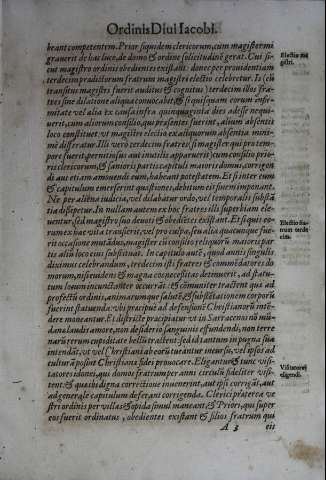 Ordinis Diui Iacobi.
beant competentem. Prior siquidem clericorum, cum magister mi
grauerit de hac luce, de domo & ordine solicitudinē gerat. Cui si-
cut magistro ordinis obedientes existant: donec per prouidentiam
terdecim prædictorum fratrum magistri electio celebretur. Is (cū
transitus magistri fuerit auditus & cognitus) terdecim illos fra-
tres sine dilatione aliqua conuocabit, & si quisquam eorum infir-
mitate vel alia ex causa infra quinquaginta dies adesse nequi-
uerit, cum aliorum consilio, qui præsentes fuerint, alium absentis
loco constituet vt magistri electio ex aliquorum absentia mini-
mè differatur. Illi verò terdecim fratres, si magister qui pro tem-
pore fuerit, pernitiosus aut inutilis apparuerit) cum consilio prio-
ris clericorum, & sanioris partis capituli maioris domus, corrigen
di aut etiam amouendi eum, habeant potestatem. Et si inter eum
& capitulum emerserint questiones, debitum eis finem imponant.
Ne per aliena iudicia, vel dilabatur ordo, vel temporalis substā
tia dissipetur. In nullum autem ex hoc fratres illi superbiam ele
uentur, sed magistro sup deuoti & obedientes existāt. Et si quis eo-
rum ex hac vita transierit, vel pro culpa, seu alia quacunque fue-
rit occasione mutādus, magister cū consilio reliquorū maioris par
tis aliū loco eius substituat. In capitulo autē, quod annis singulis
diximus celebrandum, terdecim isti fratres & commēdatores do
morum, nisi euidens & magna eos necessitas detinuerit, ad statu-
tum locum incunctanter occurrāt: & cōmuniter tractent quæ ad
profectū ordinis, animarumque salutē & substētationem corporū
fuerint statuenda: vbi præcipuè ad defensionē Christianorū intē
dere moneantur. Et districtè præcipiatur vt in Sarracenos nō mū
danæ laudis amore, non desiderio sanguinis effundendi, non terre
narū rerum cupiditate bella tractent: sed id tantum in pugna sua
intendāt, vt vel Christianos ab eorū tueantur incursu, vel ipsos ad
culturā possint Christianæ fidei prouocare. Eligantur & tunc visi-
tatores idonei, qui domos fratrum per anni circulū fideliter visi-
tent, & quæ ibi digna correctione inuenerint, aut ipsi corrigāt, aut
ad generale capitulum deferant corrigenda. Clerici præterea ve
stri ordinis per villas & oppida simul maneant, & Priori, qui super
eos fuerit ordinatus, obedientes existant & filios fratrum qui
A 3 eis
Electio ma
gistri.
Electio fra-
trum terde
cim.
Visitatores
eligendi.